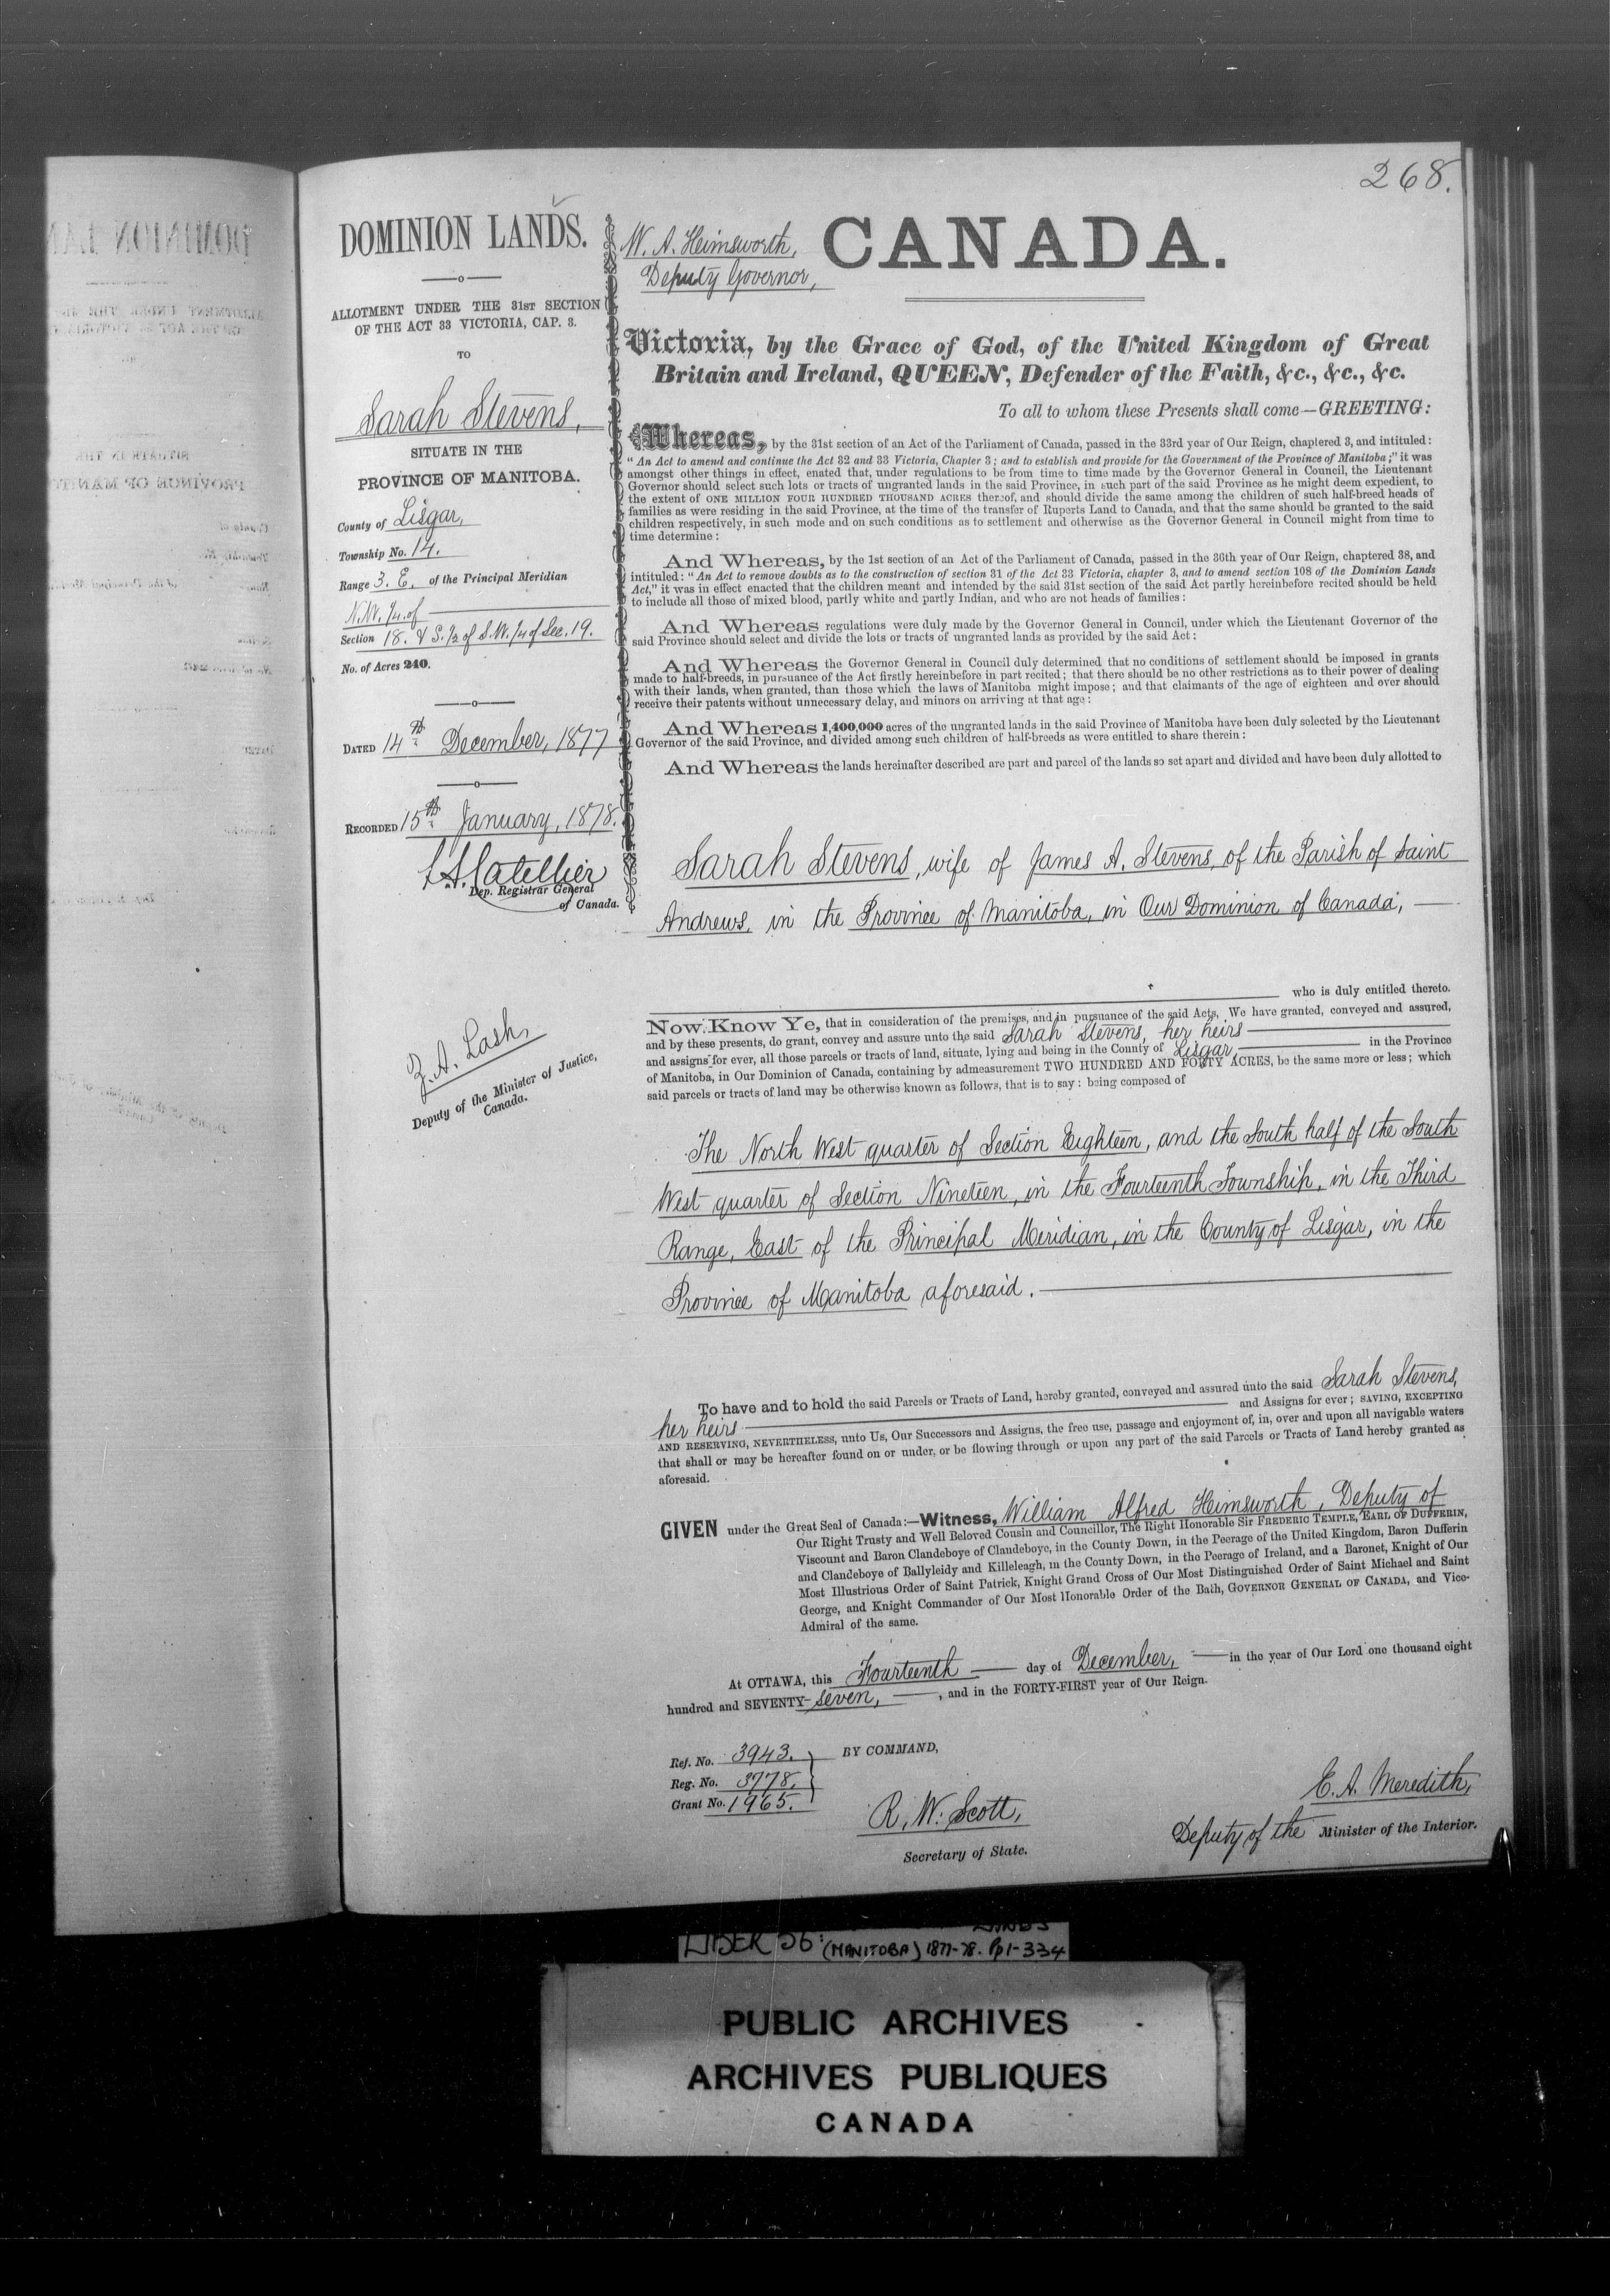 268.
DOMINION LANDS.
ALLOTMENT UNDER THE 31ST SECTION
OF THE ACT 33 VICTORIA, CAP. 3.
TO
Sarah Stevens,
SITUATE IN THE
PROVINCE OF MANITOBA.
County of Lisgar,
Township No. 14.
Range 3. E. of the Principal Meridian
N.W. 1/4 of
Section 18. & S. 1/2 of S.W. 1/4 of Sec. 19.
No. of Acres 240.
DATED 14th December, 1877
RECORDED 15th January, 1878.
L.A. Catellier
Dep. Registrar General
of Canada.
Z. A. Lash,
Deputy of the Minister of Justice,
Canada.
W. A. Heimsworth,
Deputy Governor,
CANADA.
Victoria, by the Grace of God, of the United Kingdom of Great
Britain and Ireland, QUEEN, Defender of the Faith, &c., &c., &c.
To all to whom these Presents shall come—GREETING:
Whereas, by the 31st section of an Act of the Parliament of Canada, passed in the 33rd year of Our Reign, chaptered 3, and intituled:
"An Act to amend and continue the Act 32 and 33 Victoria, Chapter 3; and to establish and provide for the Government of the Province of Manitoba;" it was
amongst other things in effect, enated that, under regulations to be from time to time made by the Governor General in Council, the Lieutenant
Governor should select such lots or tracts of ungranted lands in the said Province, in such part of the said Province as he might deem expedient, to
the extent of ONE MILLION FOUR HUNDRED THOUSAND ACRES thereof, and should divide the same among the children of such half-breed heads of
families as were residing in the said Province, at the time of the transfer of Ruperts Land to Canada, and that the same should be granted to the said
children respectively, in such mode and on such conditions as to settlement and otherwise as the Governor General in Council might from time to
time determine:
And Whereas, by the 1st section of an Act of the Parliament of Canada, passed in the 36th year of Our Reign, chaptered 38, and
intituled: "An Act to remove doubts as to the construction of section 31 of the Act 33 Victoria, chapter 3, and to amend section 108 of the Dominion Lands
Act," it was in effect enacted that the children meant and intended by the said 31st section of the said Act partly hereinbefore recited should be held
to include all those of mixed blood, partly white and partly Indian, and who are not heads of families:
And Whereas regulations were duly made by the Governor General in Council, under which the Lieutenant Governor of the
said Province should select and divide the lots or tracts of ungranted lands as provided by the said Act:
And Whereas the Governor General in Council duly determined that no conditions of settlement should be imposed in grants
made to half-breeds, in pursuance of the Act firstly hereinbefore in part recited; that there should be no other restrictions as to their power of dealing
with their lands, when granted, than those which the laws of Manitoba might impose; and that claimants of the age of eighteen and over should
receive their patents without unnecessary delay, and minors on arriving at that age:
And Whereas 1,400,000 acres of the ungranted lands in the said Province of Manitoba have been duly selected by the Lieutenant
Governor of the said Province, and divided among such children of half-breeds as were entitled to share therein:
And Whereas the lands hereinafter described are part and parcel of the lands so set apart and divided and have been duly allotted to
Sarah Stevens, wife of James A. Stevens, of the Parish of Saint
Andrews, in the Province of Manitoba, in Our Dominion of Canada,
who is duly entitled thereto.
Now Know Ye, that in consideration of the premises, and in pursuance of the said Acts, We have granted, conveyed and assured,
and by these presents, do grant, convey and assure unto the said Sarah Stevens, her heirs
and assigns for ever, all those parcels or tracts of land, situate, lying and being in the County of Lisgar, in the Province
of Manitoba, in Our Dominion of Canada, containing by admeasurement TWO HUNDRED AND FORTY ACRES, be the same more or less; which
said parcels or tracts of land may be otherwise known as follows, that is to say: being composed of
The North West quarter of Section Eighteen, and the South half of the South
West quarter of Section Nineteen, in the Fourteenth Township, in the Third
Range, East of the Principal Meridian, in the County of Lisgar, in the
Province of Manitoba aforesaid.
To have and to hold the said Parcels or Tracts of Land, hereby granted, conveyed and assured unto the said Sarah Stevens,
her heirs and Assigns for ever; SAVING, EXCEPTING
AND RESERVING, NEVERTHELESS, unto Us, Our Successors and Assigns, the free use, passage and enjoyment of, in, over and upon all navigable waters
that shall or may be hereafter found on or under, or be flowing through or upon any part of the said Parcels or Tracts of Land hereby granted as
aforesaid.
GIVEN under the Great Seal of Canada:—Witness, William Alfred Heimsworth, Deputy of
Our Right Trusty and Well Beloved Cousin and Councillor, The Right Honorable Sir FREDERIC TEMPLE, EARL OF DUFFERIN,
Viscount and Baron Clandeboye of Clandeboye, in the County Down, in the Peerage of the United Kingdom, Baron Dufferin
and Clandeboye of Ballyleidy and Killeleagh, in the County Down, in the Peerage of Ireland, and a Baronet, Knight of Our
Most Illustrious Order of Saint Patrick, Knight Grand Cross of Our Most Distinguished Order of Saint Michael and Saint
George, and Knight Commander of Our Most Honorable Order of the Bath, GOVERNOR GENERAL OF CANADA, and Vice-
Admiral of the same.
At OTTAWA, this Fourteenth day of December, in the year of Our Lord one thousand eight
hundred and SEVENTY-seven, , and in the FORTY-FIRST year of Our Reign.
Ref. No. 3943.
Reg. No. 3778,
Grant No. 1965.
BY COMMAND,
R. W. Scott,
Secretary of State.
E. A. Meredith,
Deputy of the Minister of the Interior.
LIBER 56: (MANITOBA) 1877-78. Pp 1-334
PUBLIC ARCHIVES
ARCHIVES PUBLIQUES
CANADA